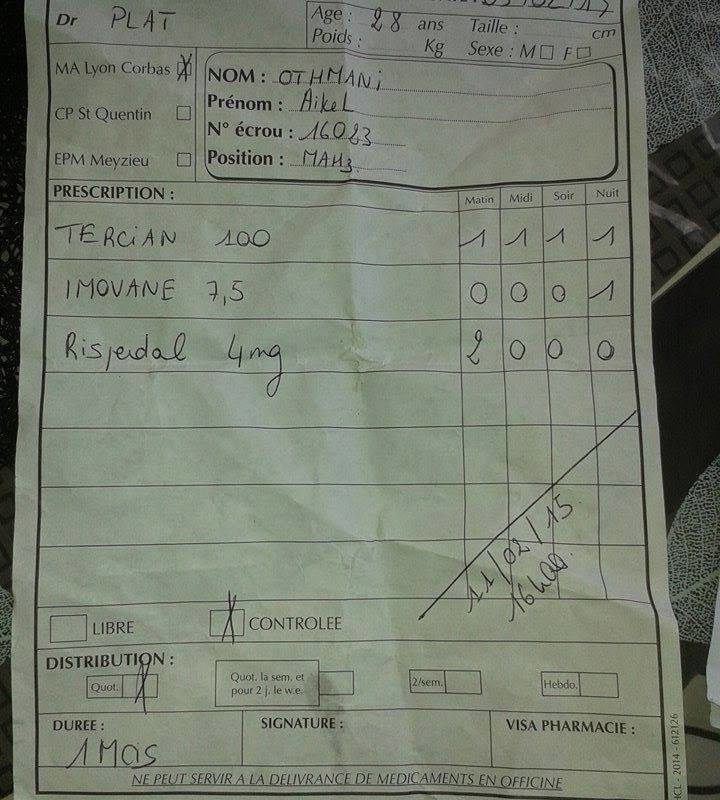 Dr PLAT
Age : 28 ans Taille : cm
Poids : Kg Sexe : M F
MA Lyon Corbas X
CP St Quentin
EPM Meyzieu
NOM : OTHMANi
Prénom : AikeL
N° écrou : 16023
Position : MAH3
PRESCRIPTION : Matin Midi Soir Nuit
TERCiAN 100 1 1 1 1
IMOVANE 7,5 0 0 0 1
Risperdal 4mg 2 0 0 0
11/02/15
16h00
LIBRE X CONTROLEE
DISTRIBUTION :
Quot. X Quot. la sem. et pour 2 j. le w.e. 2/sem. Hebdo.
DUREE : SIGNATURE : VISA PHARMACIE :
1 Mois
NE PEUT SERVIR A LA DELIVRANCE DE MEDICAMENTS EN OFFICINE
HCL - 2014 - 612126